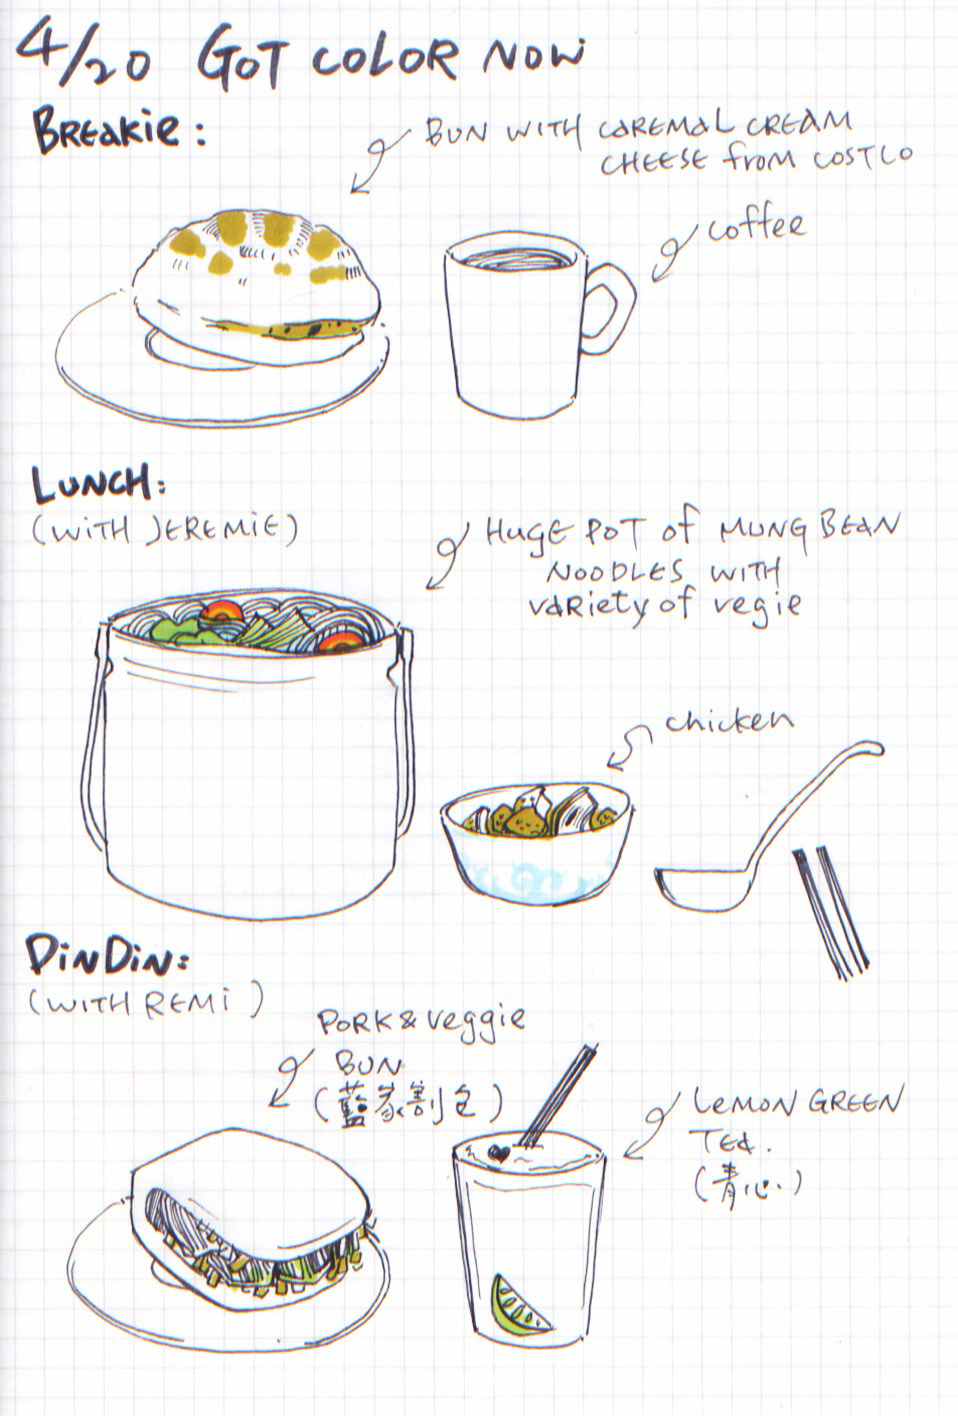 4/20 GOT COLOR NOW
BREAKIE:
BUN WITH CAREMAL CREAM
CHEESE from COSTCO
coffee
LUNCH:
(WITH JEREMIE)
HUGE POT of MUNG BEAN
NOODLES WITH
VARIETY of vegie
chicken
DINDIN:
(WITH REMI)
PORK & veggie
BUN
(藍家割包)
LEMON GREEN
TEA.
(青心)